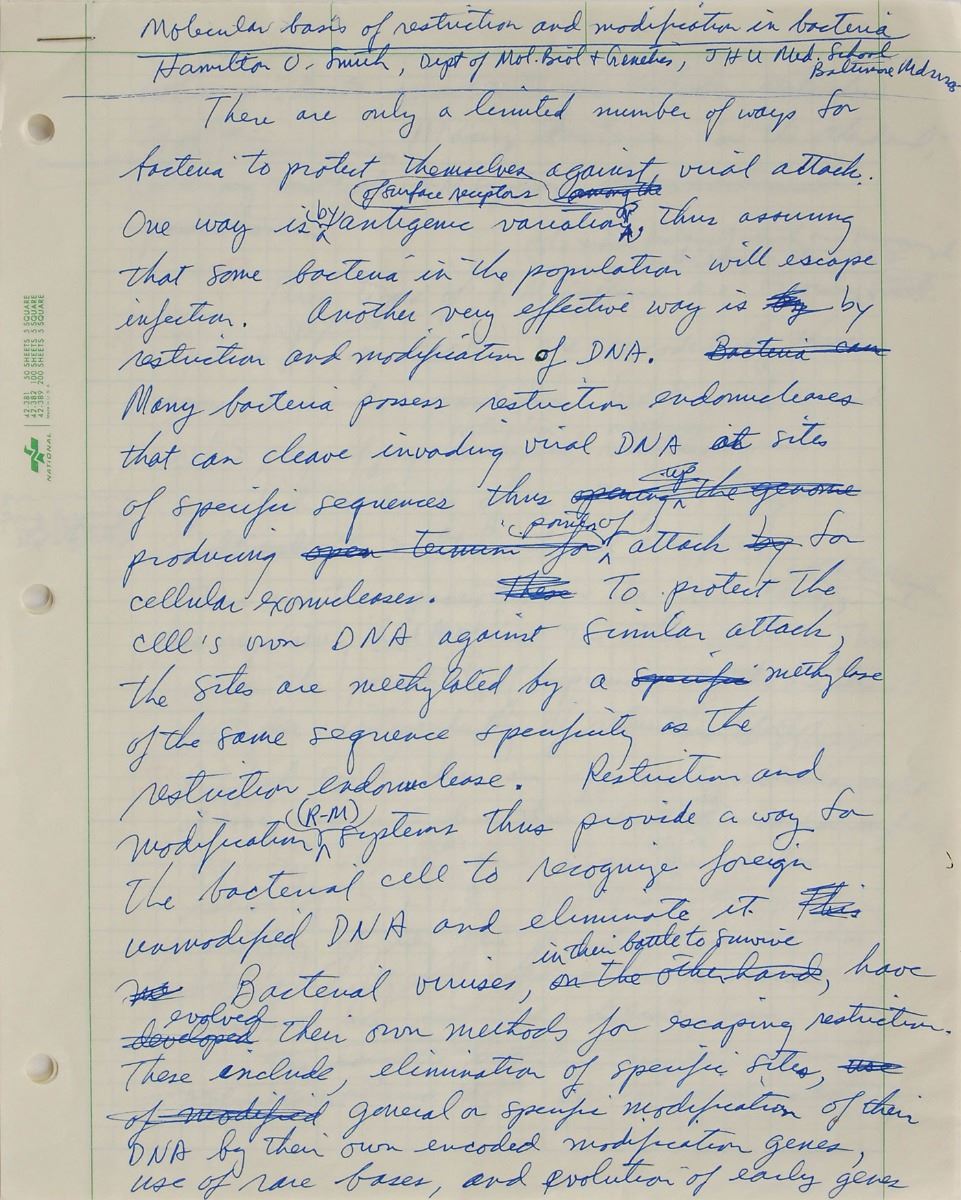 Molecular basis of restriction and modification in bacteria
Hamilton O. Smith, Dept of Mol. Biol + Genetics, JHU Med. School
Baltimore Md
There are only a limited number of ways for
bacteria to protect themselves against viral attack.
of surface receptors among the
One way is by antigenic variation, thus assuring
that some bacteria in the population will escape
infection. Another very effective way is by by
restriction and modification of DNA. Bacteria can
Many bacteria possess restriction endonucleases
that can cleave invading viral DNA at sites
of specific sequences thus opening up the genome
producing open termini for points of attack by for
cellular exonucleases. These To protect the
cell's own DNA against similar attack,
the sites are methylated by a specific methylase
of the same sequence specificity as the
restriction endonuclease. Restriction and
modification (R-M) systems thus provide a way for
the bacterial cell to recognize foreign
unmodified DNA and eliminate it. This
in their battle to survive
Bacterial viruses, on the other hand, have
evolved
developed their own methods for escaping restriction.
These include, elimination of specific sites, use
of modified general or specific modification of their
DNA by their own encoded modification genes,
use of rare bases, and evolution of early genes
NATIONAL
42-381 50 SHEETS 5 SQUARE
42-382 100 SHEETS 5 SQUARE
42-389 200 SHEETS 5 SQUARE